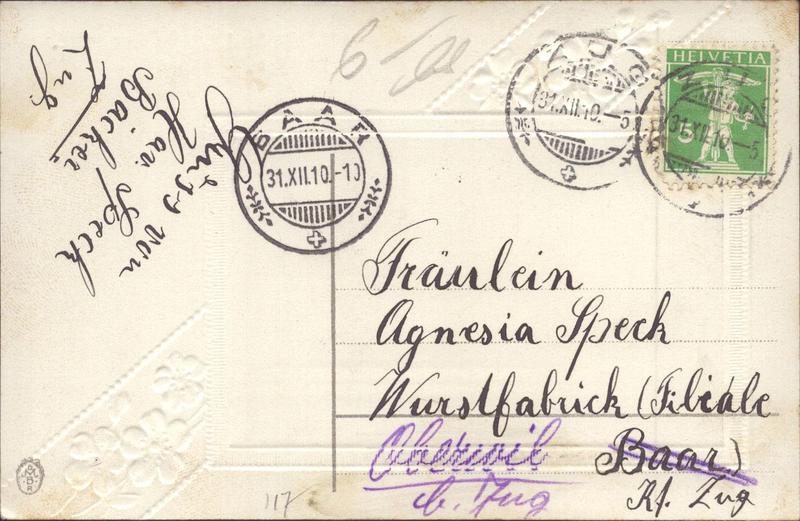 6
ZUG
31.XII.10.-5
HELVETIA
5
31.XII.10.-5
BAAR
31.XII.10.-10
Gruss von
Bäcker
Speck
Zug
Fräulein
Agnesia Speck
Wurstfabrick (Filiale
Baar)
Kt. Zug
Oberwil
b. Zug
117